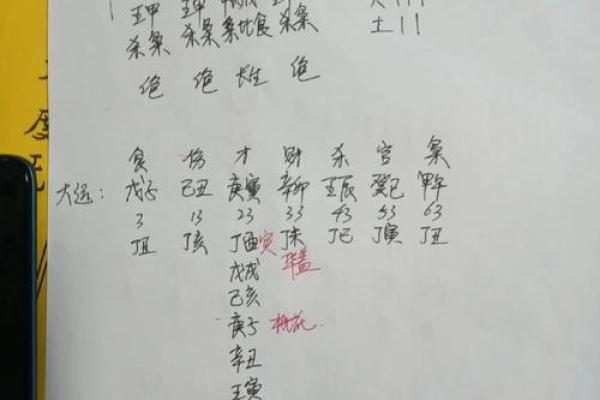 壬甲 壬甲
杀枭 杀枭 枭比食 杀枭 土||
绝 绝 长生 绝
食 伤 才 财 杀 官 枭
大运: 戊子 己丑 庚寅 辛卯 壬辰 癸巳 甲午
3 13 23 33 43 53 63
丁丑 丁亥 丁酉 丁未 丁巳 丁寅 丁丑
戊戌 华盖
己亥
庚子 桃花
辛丑
壬寅